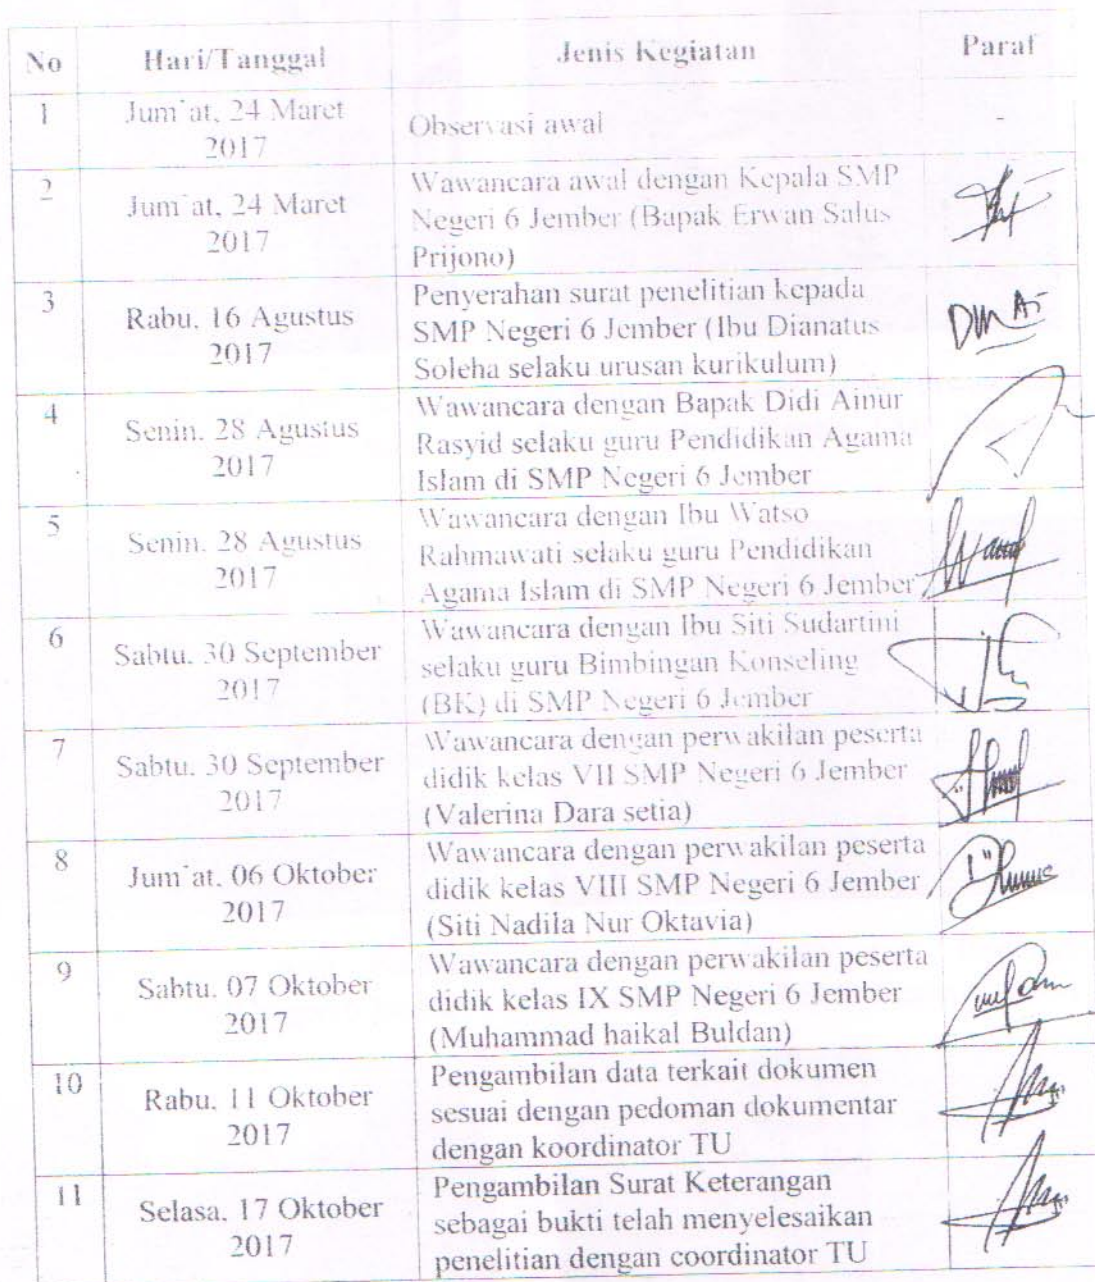 No Hari/Tanggal Jenis Kegiatan Paraf
1 Jum'at, 24 Maret
2017
Observasi awal -
2 Jum'at, 24 Maret
2017
Wawancara awal dengan Kepala SMP
Negeri 6 Jember (Bapak Erwan Salus
Prijono)
3 Rabu, 16 Agustus
2017
Penyerahan surat penelitian kepada
SMP Negeri 6 Jember (Ibu Dianatus
Soleha selaku urusan kurikulum)
4 Senin, 28 Agustus
2017
Wawancara dengan Bapak Didi Ainur
Rasyid selaku guru Pendidikan Agama
Islam di SMP Negeri 6 Jember
5 Senin, 28 Agustus
2017
Wawancara dengan Ibu Watso
Rahmawati selaku guru Pendidikan
Agama Islam di SMP Negeri 6 Jember
6 Sabtu, 30 September
2017
Wawancara dengan Ibu Siti Sudartini
selaku guru Bimbingan Konseling
(BK) di SMP Negeri 6 Jember
7 Sabtu, 30 September
2017
Wawancara dengan perwakilan peserta
didik kelas VII SMP Negeri 6 Jember
(Valerina Dara setia)
8 Jum'at, 06 Oktober
2017
Wawancara dengan perwakilan peserta
didik kelas VIII SMP Negeri 6 Jember
(Siti Nadila Nur Oktavia)
9 Sabtu, 07 Oktober
2017
Wawancara dengan perwakilan peserta
didik kelas IX SMP Negeri 6 Jember
(Muhammad haikal Buldan)
10 Rabu, 11 Oktober
2017
Pengambilan data terkait dokumen
sesuai dengan pedoman dokumentar
dengan koordinator TU
11 Selasa, 17 Oktober
2017
Pengambilan Surat Keterangan
sebagai bukti telah menyelesaikan
penelitian dengan coordinator TU